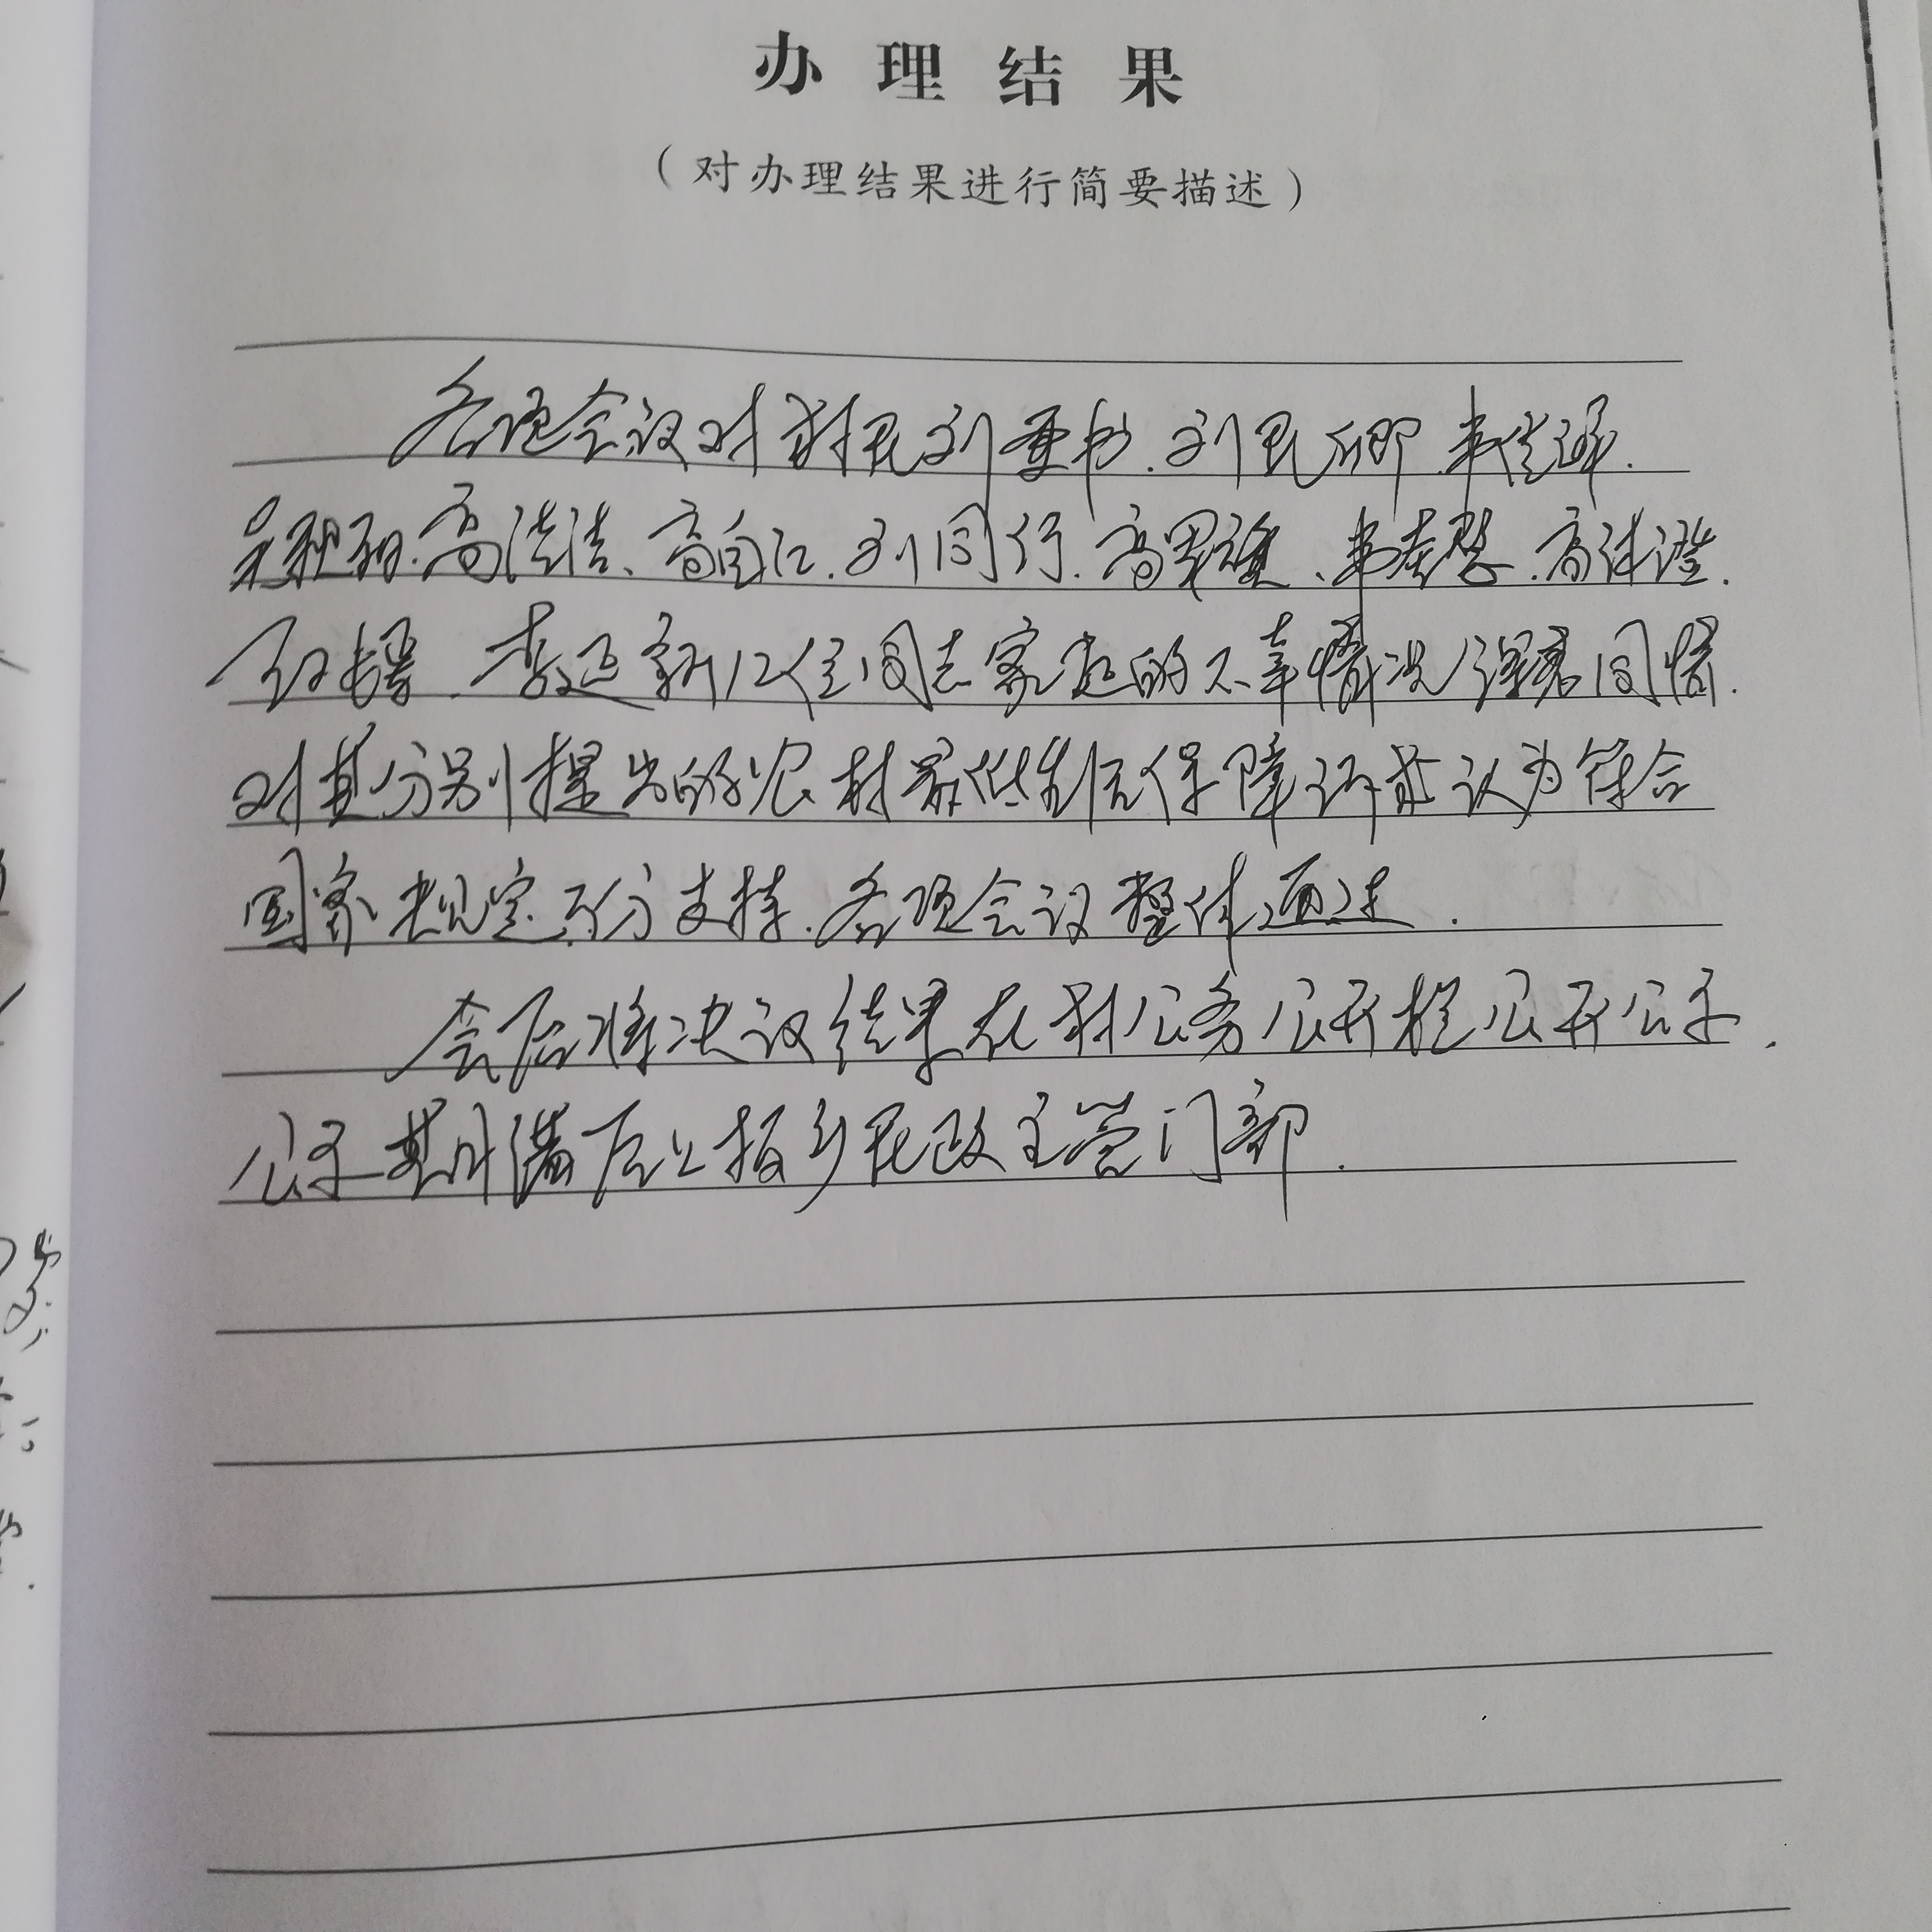 办理结果
（对办理结果进行简要描述）
各项会议对村民刘重书、刘民卿、
高洁洁、高自江、刘同行、高
李延新12位同志家庭的不幸情况深表同情.
对其分别提出的农村最低生活保障诉求认为符合
国家规定、万分支持.各项会议整体通过.
会后将决议结果在村公务公开栏公开公示.
公示期满后上报乡民政主管门部.